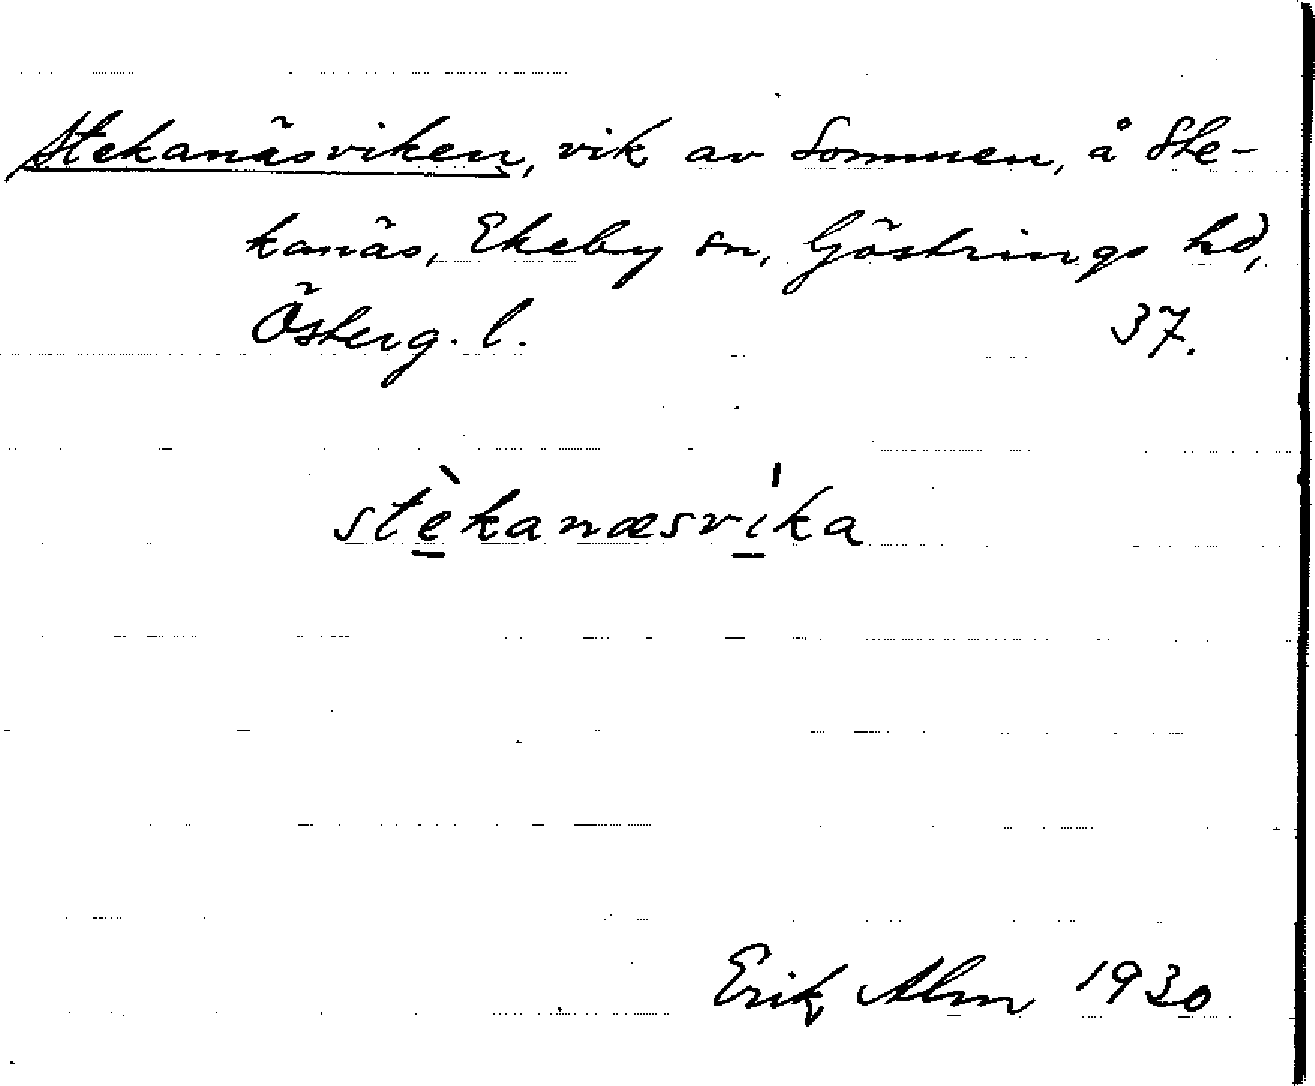 Stekanäsviken, vik av Sommen, å Ste-
kanäs, Ekeby sn, Göstrings hd,
Österg. l. 37.
stè̱kanæsvi̱̍ka
Erik Alm 1930